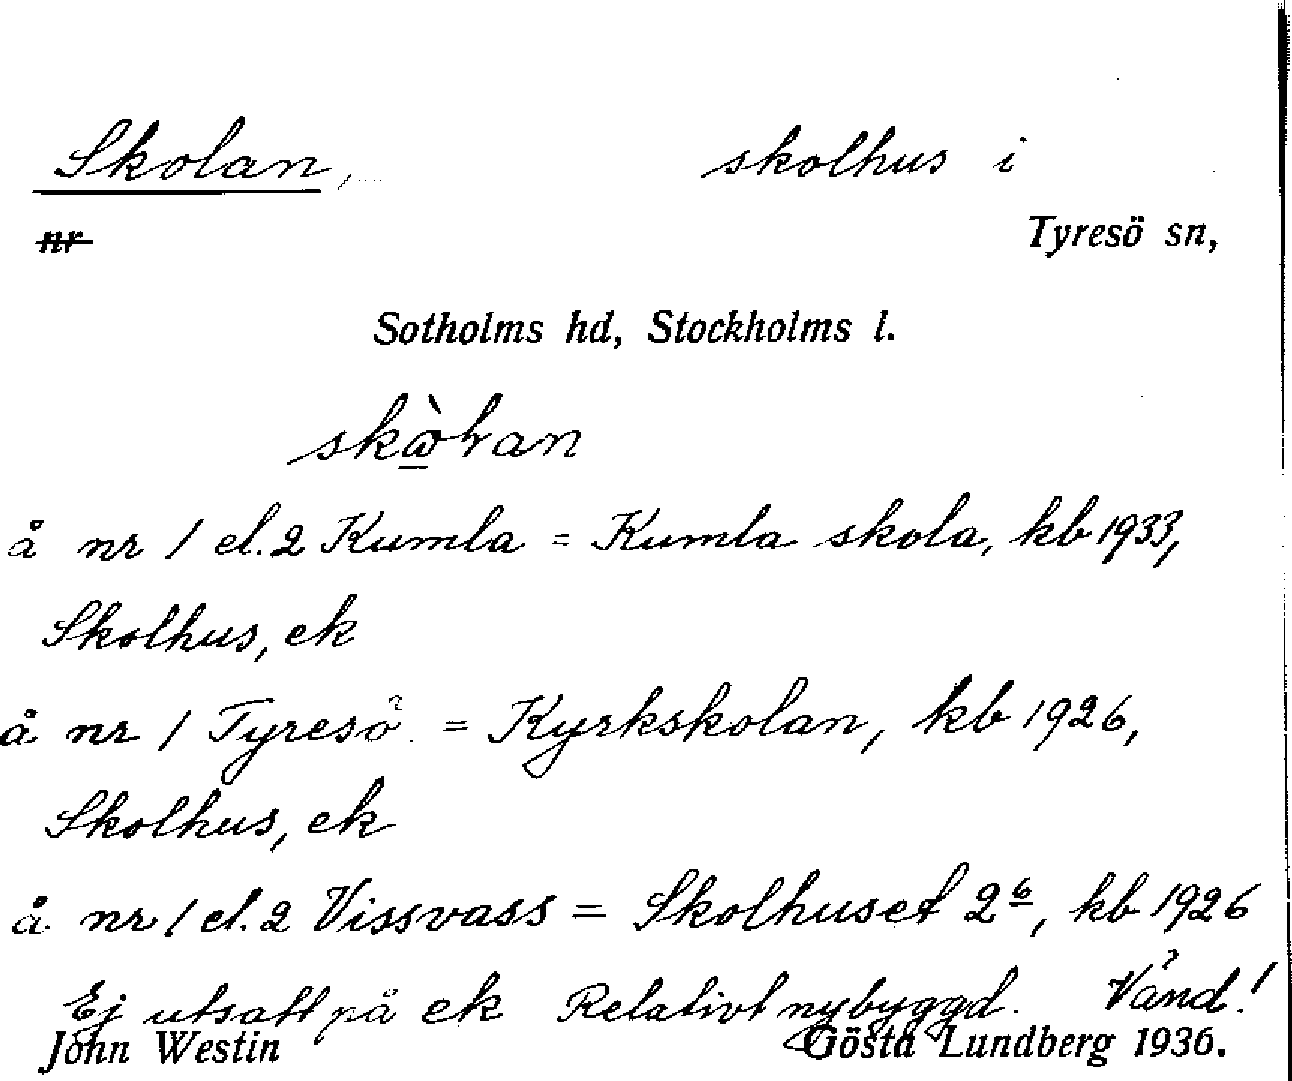 Skolan, skolhus i
nr Tyresö sn,
Sotholms hd, Stockholms l.
å nr 1 el. 2 Kumla = Kumla skola, kb 1933,
Skolhus, ek
å nr 1 Tyresö = Kyrkskolan, kb 1926,
Skolhus, ek
å nr 1 el. 2 Vissvass = Skolhuset 2⁶, kb 1926
Ej utsatt på ek Relativt nybyggd. Vänd!
John Westin Gösta Lundberg 1936.